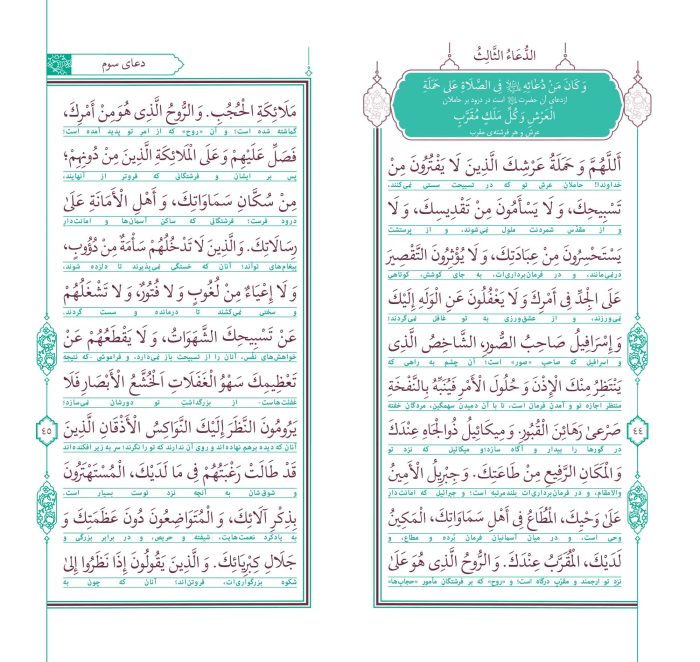 الدُّعَاءُ الثَّالِثُ
وَ كَانَ مِنْ دُعَائِهِ ﷺ فِی الصَّلَاةِ عَلَىٰ حَمَلَةِ
ازدعای آن حضرت ﷺ است در درود بر حاملان
الْعَرْشِ وَ كُلِّ مَلَكٍ مُقَرَّبٍ
عرش و هر فرشته‌ی مقرب
أَللَّهُمَّ وَ حَمَلَةُ عَرْشِكَ الَّذِينَ لَا يَفْتُرُونَ مِنْ
خداوندا! حاملان عرش تو که در تسبیحت سستی نمی‌کنند،
تَسْبِيحِكَ، وَ لَا يَسْأَمُونَ مِنْ تَقْدِيسِكَ، وَ لَا
و از مقدّس شمردنت ملول نمی‌شوند، و از پرستشت
يَسْتَحْسِرُونَ مِنْ عِبَادَتِكَ، وَ لَا يُؤْثِرُونَ التَّقْصِيرَ
درنمی‌مانند، و در فرمان‌برداری‌ات، به جای کوشش، کوتاهی
عَلَى الْجِدِّ فِی أَمْرِكَ وَ لَا يَغْفُلُونَ عَنِ الْوَلَهِ إِلَيْكَ
نمی‌ورزند، و از عشق‌ورزی به تو غافل نمی‌گردند؛
وَ إِسْرَافِيلُ صَاحِبُ الصُّورِ، الشَّاخِصُ الَّذِی
و اسرافیل که صاحب «صور» است؛ آن چشم به راهی که
يَنْتَظِرُ مِنْكَ الْإِذْنَ وَ حُلُولَ الْأَمْرِ فَيُنَبِّهُ بِالنَّفْخَةِ
منتظر اجازه تو و آمدن فرمان است، تا با آن دمیدن سهمگین، مردگان خفته
صَرْعَىٰ رَهَائِنَ الْقُبُورِ. وَ مِيكَائِيلُ ذُوالْجَاهِ عِنْدَكَ
در گورها را بیدار و آگاه سازد؛ و میکائیل که نزد تو
وَ الْمَكَانِ الرَّفِيعِ مِنْ طَاعَتِكَ. وَ جِبْرِيلُ الْأَمِينُ
والامقام، و در فرمان‌برداری‌ات بلندمرتبه است؛ و جبرائیل که امانت‌دار
عَلَىٰ وَحْيِكَ، الْمُطَاعُ فِی أَهْلِ سَمَاوَاتِكَ، الْمَكِينُ
وحی است، و در میان آسمانیان فرمان بُرده و مطاع، و
لَدَيْكَ، الْمُقَرَّبُ عِنْدَكَ. وَ الرُّوحُ الَّذِی هُوَ عَلَىٰ
نزد تو ارجمند و مقرّب درگاه است؛ و «روح» که بر فرشتگانِ مأمور «حجاب‌ها»
٤٤
دعای سوم
مَلَائِكَةِ الْحُجُبِ. وَ الرُّوحُ الَّذِی هُوَ مِنْ أَمْرِكَ،
گماشته شده است؛ و آن «روح» که از امر تو پدید آمده است؛
فَصَلِّ عَلَيْهِمْ وَ عَلَى الْمَلَائِكَةِ الَّذِينَ مِنْ دُونِهِمْ؛
پس بر ایشان و فرشتگانی که فروتر از آنهایند،
مِنْ سُكَّانِ سَمَاوَاتِكَ، وَ أَهْلِ الْأَمَانَةِ عَلَىٰ
درود فرست؛ فرشتگانی که ساکن آسمان‌ها و امانت‌دار
رِسَالَاتِكَ. وَ الَّذِينَ لَا تَدْخُلُهُمْ سَأْمَةٌ مِنْ دُؤُوبٍ،
پیغام‌های توأند؛ آنان که خستگی نمی‌پذیرند تا دلزده شوند،
وَ لَا إِعْيَاءٌ مِنْ لُغُوبٍ وَ لَا فُتُورٌ، وَ لَا تَشْغَلُهُمْ
و سختی نمی‌کشند تا درمانده و سست گردند.
عَنْ تَسْبِيحِكَ الشَّهَوَاتُ، وَ لَا يَقْطَعُهُمْ عَنْ
خواهش‌های نفس، آنان را از تسبیحت باز نمی‌دارد، و فراموشی -که نتیجه
تَعْظِيمِكَ سَهْوُ الْغَفَلَاتِ اَلْخُشَّعُ الْأَبْصَارِ فَلَا
غفلت‌هاست- از بزرگداشت تو دورشان نمی‌سازد؛
يَرُومُونَ النَّظَرَ إِلَيْكَ النَّوَاكِسُ الْأَذْقَانِ الَّذِينَ
آنان که دیده برهم نهاده اند و روی آن ندارند که تو را نگرند؛ سر به زیر افکنده اند
قَدْ طَالَتْ رَغْبَتُهُمْ فِی مَا لَدَيْكَ، الْمُسْتَهْتَرُونَ
و شوق شان به آنچه نزد توست بسیار است.
بِذِكْرِ آلَائِكَ، وَ الْمُتَوَاضِعُونَ دُونَ عَظَمَتِكَ وَ
به یادکرد نعمت‌هایت، شیفته و حریص، و در برابر بزرگی و
جَلَالِ كِبْرِيَائِكَ. وَ الَّذِينَ يَقُولُونَ إِذَا نَظَرُوا إِلَىٰ
شکوه بزرگواری‌ات، فروتن‌اند؛ آنان که چون به
٤٥